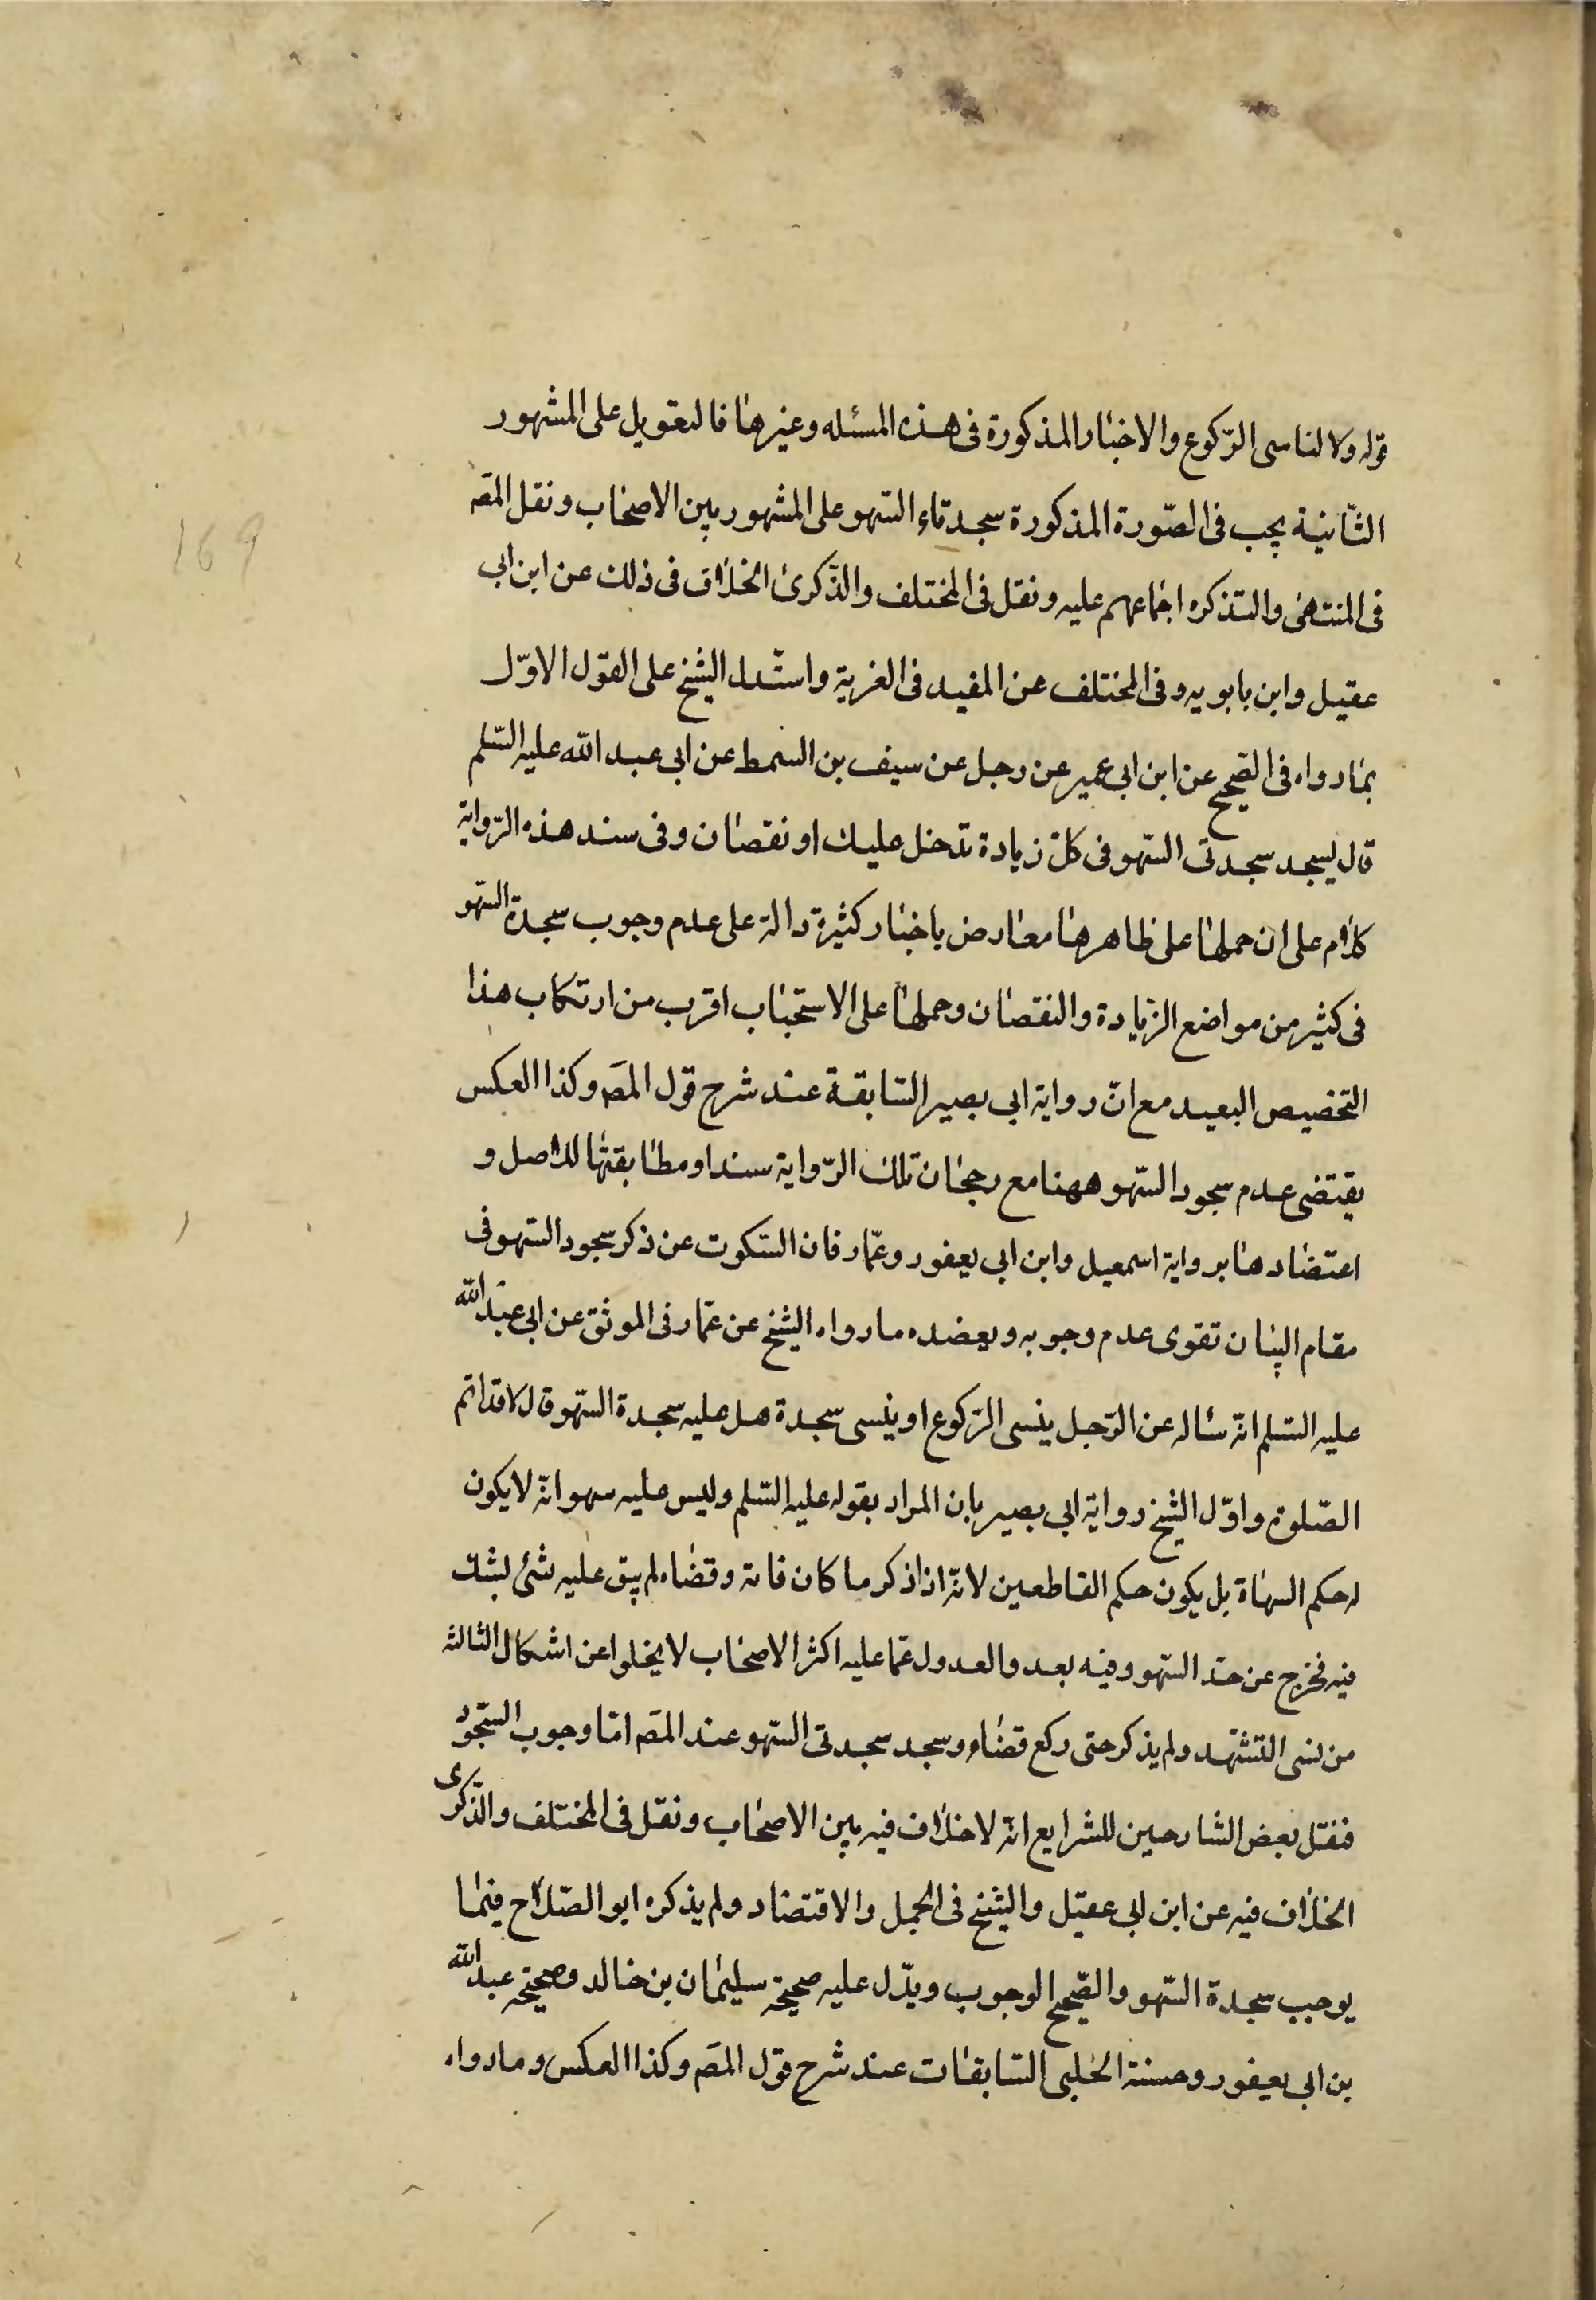 169
قوله ولا لناسى الرّكوع والاخبار المذكورة فى هذه المسئله وغيرها فالتعويل على المشهور
الثّانية يجب فى الصّورة المذكورة سجدتاء السّهو على المشهور بين الاصحاب ونقل المصَ
فى المنتهى والتذكره اجماعهم عليه ونقل فى المختلف والذّكرى الخلاف فى ذلك عن ابن ابى
عقيل وابن بابويه وفى المختلف عن المفيد فى الغرية واستدل الشيخ على القول الاوّل
بما رواه فى الصّحيح عن ابن ابى عمير عن رجل عن سيف بن السمط عن ابى عبد الله عليه السّلم
قال يسجد سجدتى السّهو فى كلّ زيادة تدخل عليك او نقصان وفى سند هذه الرّواية
كلام على ان حملها على ظاهرها معارض باخبار كثيرة دالة على عدم وجوب سجدة السّهو
فى كثير من مواضع الزّيادة والنقصان وحملها على الاستحباب اقرب من ارتكاب هذا
التخصيص البعيد مع انّ رواية ابى بصير السّابقة عند شرح قول المصَ وكذا العكس
يقتضى عدم سجود السّهو ههنا مع رجحان تلك الرّواية سندا ومطابقتها للاصل و
اعتضادها برواية اسمعيل وابن ابى يعفور وعمّار فان السّكوت عن ذكر سجود السّهو فى
مقام البيان تقوى عدم وجوبه ويعضده ما رواه الشيخ عن عمّار فى الموثق عن ابى عبد الله
عليه السّلم انّه سئاله عن الرّجل ينسى الرّكوع او ينسى سجدة هل عليه سجدة السّهو قال لا قد اتم
الصّلوة واوّل الشيخ رواية ابى بصير بان المراد بقوله عليه السّلم وليس عليه سهو انّه لا يكون
له حكم السهاة بل يكون حكم القاطعين لانّه اذا ذكر ما كان فاته وقضاه لم يبق عليه شئ يشك
فيه فخرج عن حد السّهو وفيه بعد والعدول عمّا عليه اكثر الاصحاب لا يخلوا عن اشكال الثالثه
من نسى التّشهّد ولم يذكر حتى ركع قضاه وسجد سجدتى السّهو عند المصَ امّا وجوب السّجود
فنقل بعض الشارحين للشرايع انّه لا خلاف فيه بين الاصحاب ونقل فى المختلف والذّكرى
الخلاف فيه عن ابن ابى عقيل والشيخ فى الجمل والاقتصاد ولم يذكره ابو الصّلاح فيما
يوجب سجدة السّهو والصّحيح الوجوب ويدّل عليه صحيحة سليمان بن خالد وصحيحه عبد الله
بن ابى يعفور وحسنة الحلبى السّابقات عند شرح قول المصَ وكذا العكس وما رواه